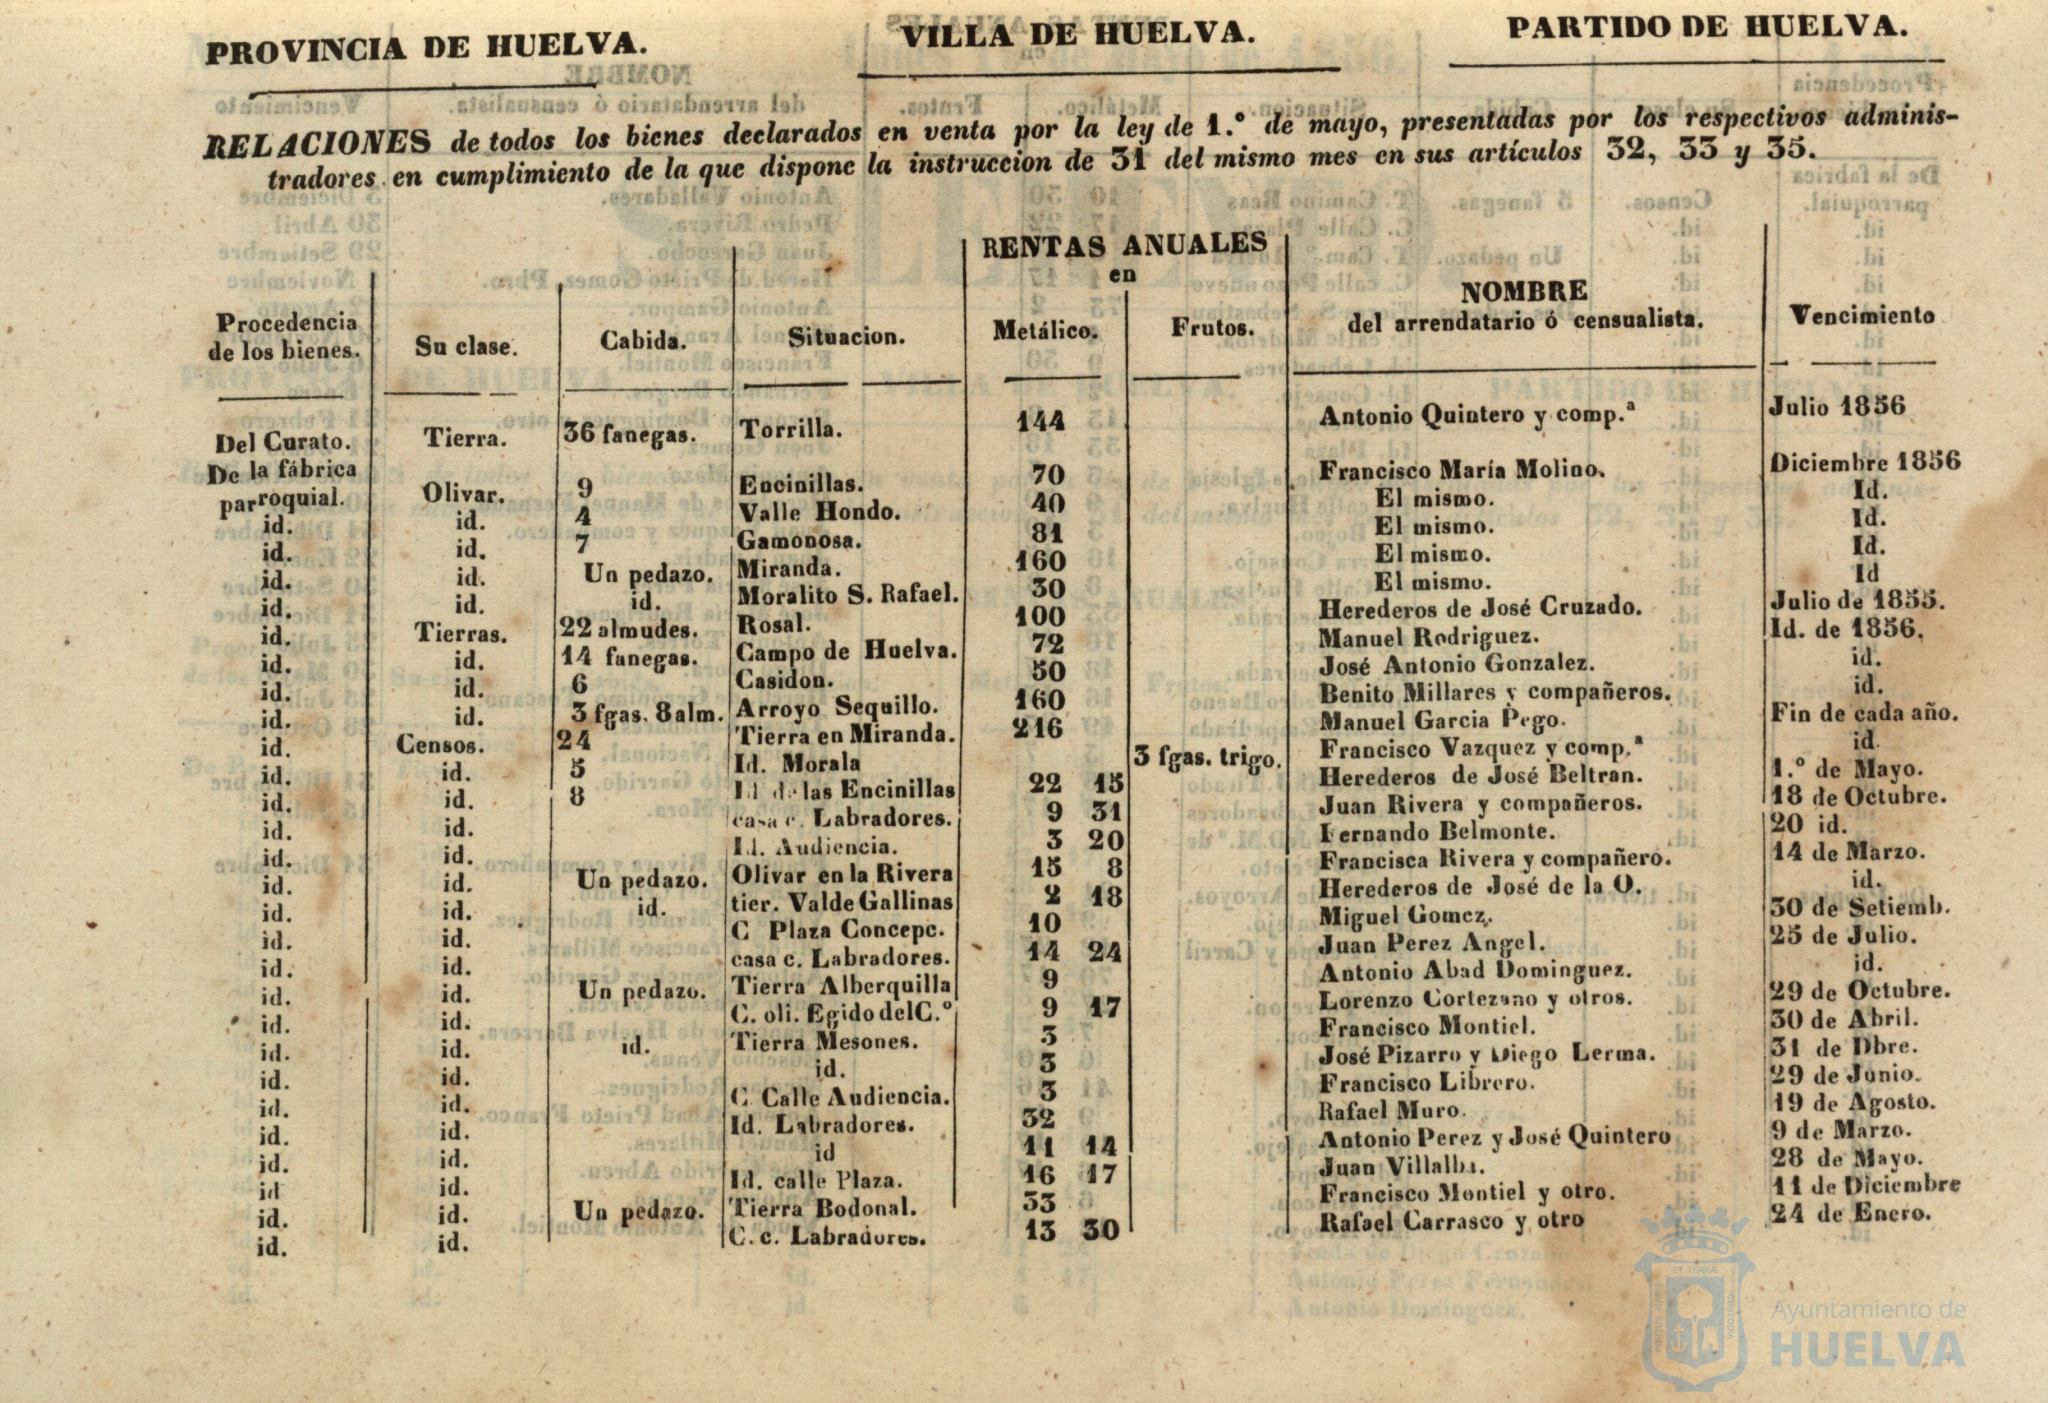 PROVINCIA DE HUELVA. VILLA DE HUELVA. PARTIDO DE HUELVA.
RELACIONES de todos los bienes declarados en venta por la ley de 1.º de mayo, presentadas por los respectivos adminis-
tradores en cumplimiento de la que dispone la instruccion de 31 del mismo mes en sus artículos 32, 33 y 35.
RENTAS ANUALES
en
Procedencia
de los bienes. Su clase. Cabida. Situacion. Metálico. Frutos. NOMBRE
del arrendatario ó censualista. Vencimiento
Del Curato. Tierra. 36 fanegas. Torrilla. 144 Antonio Quintero y comp.ª Julio 1856
De la fábrica
parroquial. Olivar. 9 Encinillas. 70 Francisco María Molino. Diciembre 1856
id. id. 4 Valle Hondo. 40 El mismo. Id.
id. id. 7 Gamonosa. 81 El mismo. Id.
id. id. Un pedazo. Miranda. 160 El mismo. Id.
id. id. id. Moralito S. Rafael. 30 El mismo. Id
id. Tierras. 22 almudes. Rosal. 100 Herederos de José Cruzado. Julio de 1855.
id. id. 14 fanegas. Campo de Huelva. 72 Manuel Rodriguez. Id. de 1856.
id. id. 6 Casidon. 50 José Antonio Gonzalez. id.
id. id. 3 fgas. 8 alm. Arroyo Sequillo. 160 Benito Millares y compañeros. id.
id. Censos. 24 Tierra en Miranda. 216 Manuel Garcia Pego. Fin de cada año.
id. id. 5 Id. Morala 3 fgas. trigo. Francisco Vazquez y comp.ª id.
id. id. 8 Id de las Encinillas 22 15 Herederos de José Beltran. 1.º de Mayo.
id. id. casa c. Labradores. 9 31 Juan Rivera y compañeros. 18 de Octubre.
id. id. Id. Audiencia. 3 20 Fernando Belmonte. 20 id.
id. id. Un pedazo. Olivar en la Rivera 15 8 Francisca Rivera y compañero. 14 de Marzo.
id. id. id. tier. Valde Gallinas 2 18 Herederos de José de la O. id.
id. id. C Plaza Concepc. 10 Miguel Gomez. 30 de Setiemb.
id. id. casa c. Labradores. 14 24 Juan Perez Angel. 25 de Julio.
id. id. Un pedazo. Tierra Alberquilla 9 Antonio Abad Dominguez. id.
id. id. C. oli. Egido del C.º 9 17 Lorenzo Cortezano y otros. 29 de Octubre.
id. id. id. Tierra Mesones. 3 Francisco Montiel. 30 de Abril.
id. id. id. 3 José Pizarro y Diego Lerma. 31 de Dbre.
id. id. C Calle Audiencia. 3 Francisco Librero. 29 de Junio.
id. id. Id. Labradores. 32 Rafael Muro. 19 de Agosto.
id. id. id 11 14 Antonio Perez y José Quintero 9 de Marzo.
id id. Id. calle Plaza. 16 17 Juan Villalba. 28 de Mayo.
id. id. Un pedazo. Tierra Bodonal. 33 Francisco Montiel y otro. 11 de Diciembre
id. id. C. c. Labradores. 13 30 Rafael Carrasco y otro 24 de Enero.
Ayuntamiento de
HUELVA